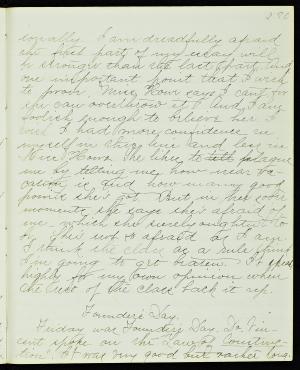 sionally. I am dreadfully afraid
the first part of my exam will
be stronger than the last part, tho
one important point that I wish
to prove, Miss Howe says I can't for
she can overthrow it & And, I am
foolish enough to believe her. I
wish I had more confidence in
myself in this line and less in
Miss Howe. She likes to plague
me by telling me how near va-
cation is and how many good
points she's got. But in her sober
moments she says she's afraid of
me which she surely oughtn't to
be. She's not so afraid as I am.
I think the class as a rule think
I'm going to get beaten. It speaks
higher for my own opinion when
the rest of the class back it up.
Founder's Day.
Friday was Founder's Day. Dr. Vin-
cent spoke on the "Law of Construc-
tion". It was very good but rather long.